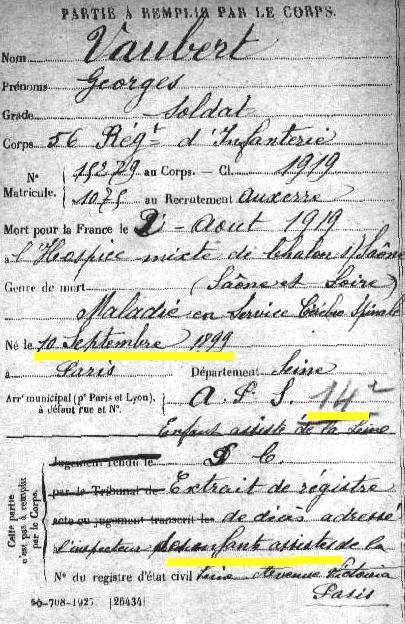 PARTIE À REMPLIR PAR LE CORPS.
Nom Vaubert
Prénoms Georges
Grade Soldat
Corps 56 Régt d'Infanterie
N° Matricule. 15279 au Corps. — Cl. 1919
1075 au Recrutement Auxerre
Mort pour la France le 2 Aout 1919
à l'Hospice mixte de Chalon s/ Saône
(Saône et Loire)
Genre de mort Maladie en Service Cérébro Spinale
Né le 10 Septembre 1899
à Paris Département Seine
Arrt municipal (pr Paris et Lyon), à défaut rue et N°. A. P. S. 14e
Enfant assisté de la Seine
Cette partie n'est pas à remplir par le Corps.
Jugement rendu le D C.
par le Tribunal de Extrait de régistre
acte ou jugement transcrit le de décès adressé
l'inspecteur des enfants assistés de la
N° du registre d'état civil Seine Avenue Victoria
Paris
[26434]